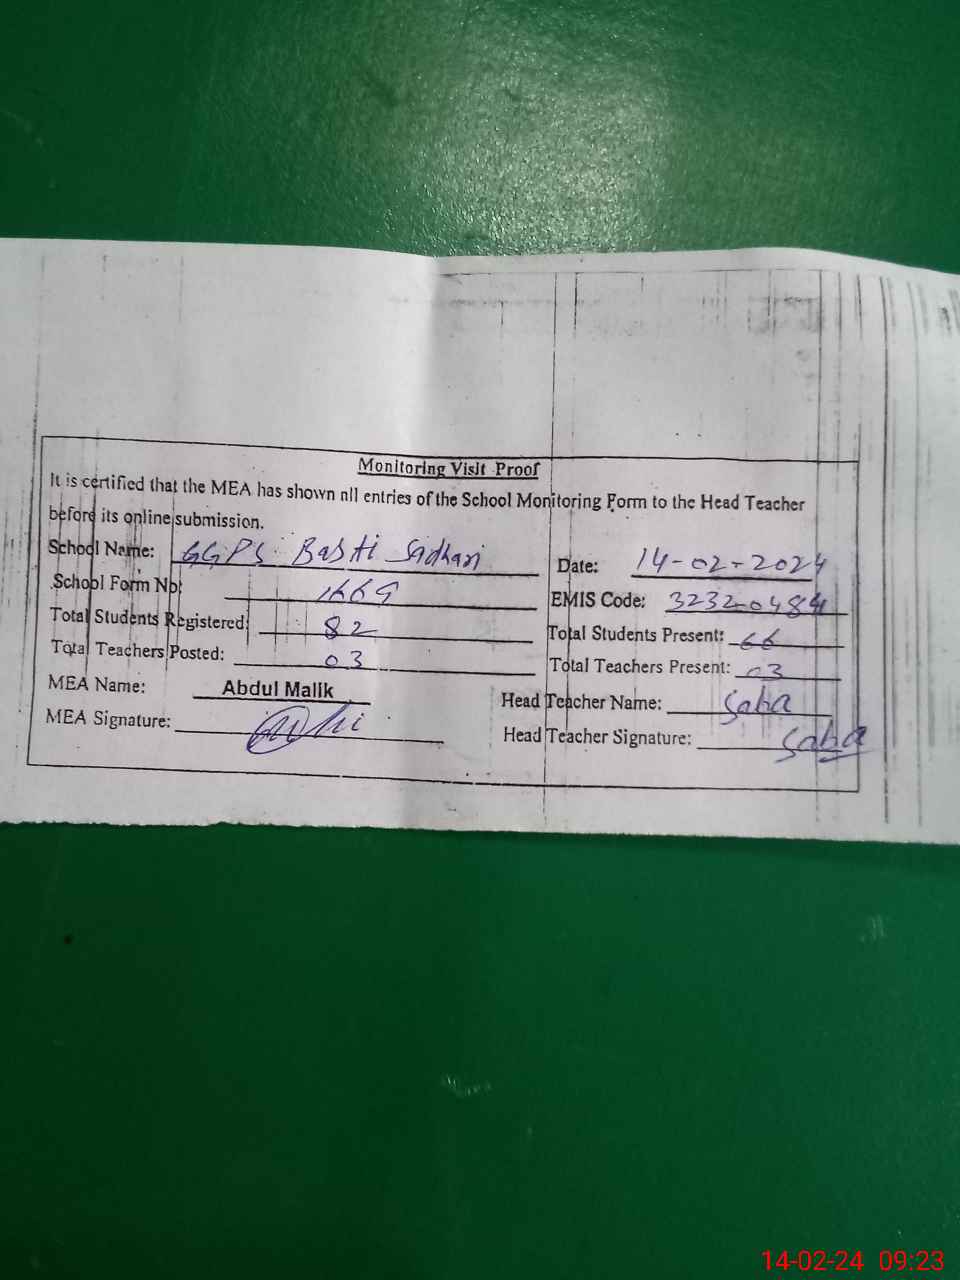 Monitoring Visit Proof
It is certified that the MEA has shown all entries of the School Monitoring Form to the Head Teacher
before its online submission.
School Name: GGPS Basti Sadhari
Date: 14-02-2024
School Form No: 1669
EMIS Code: 32320484
Total Students Registered: 82
Total Students Present: 66
Total Teachers Posted: 03
Total Teachers Present: 03
MEA Name: Abdul Malik
Head Teacher Name: Saba
MEA Signature:
Head Teacher Signature: Saba
14-02-24 09:23